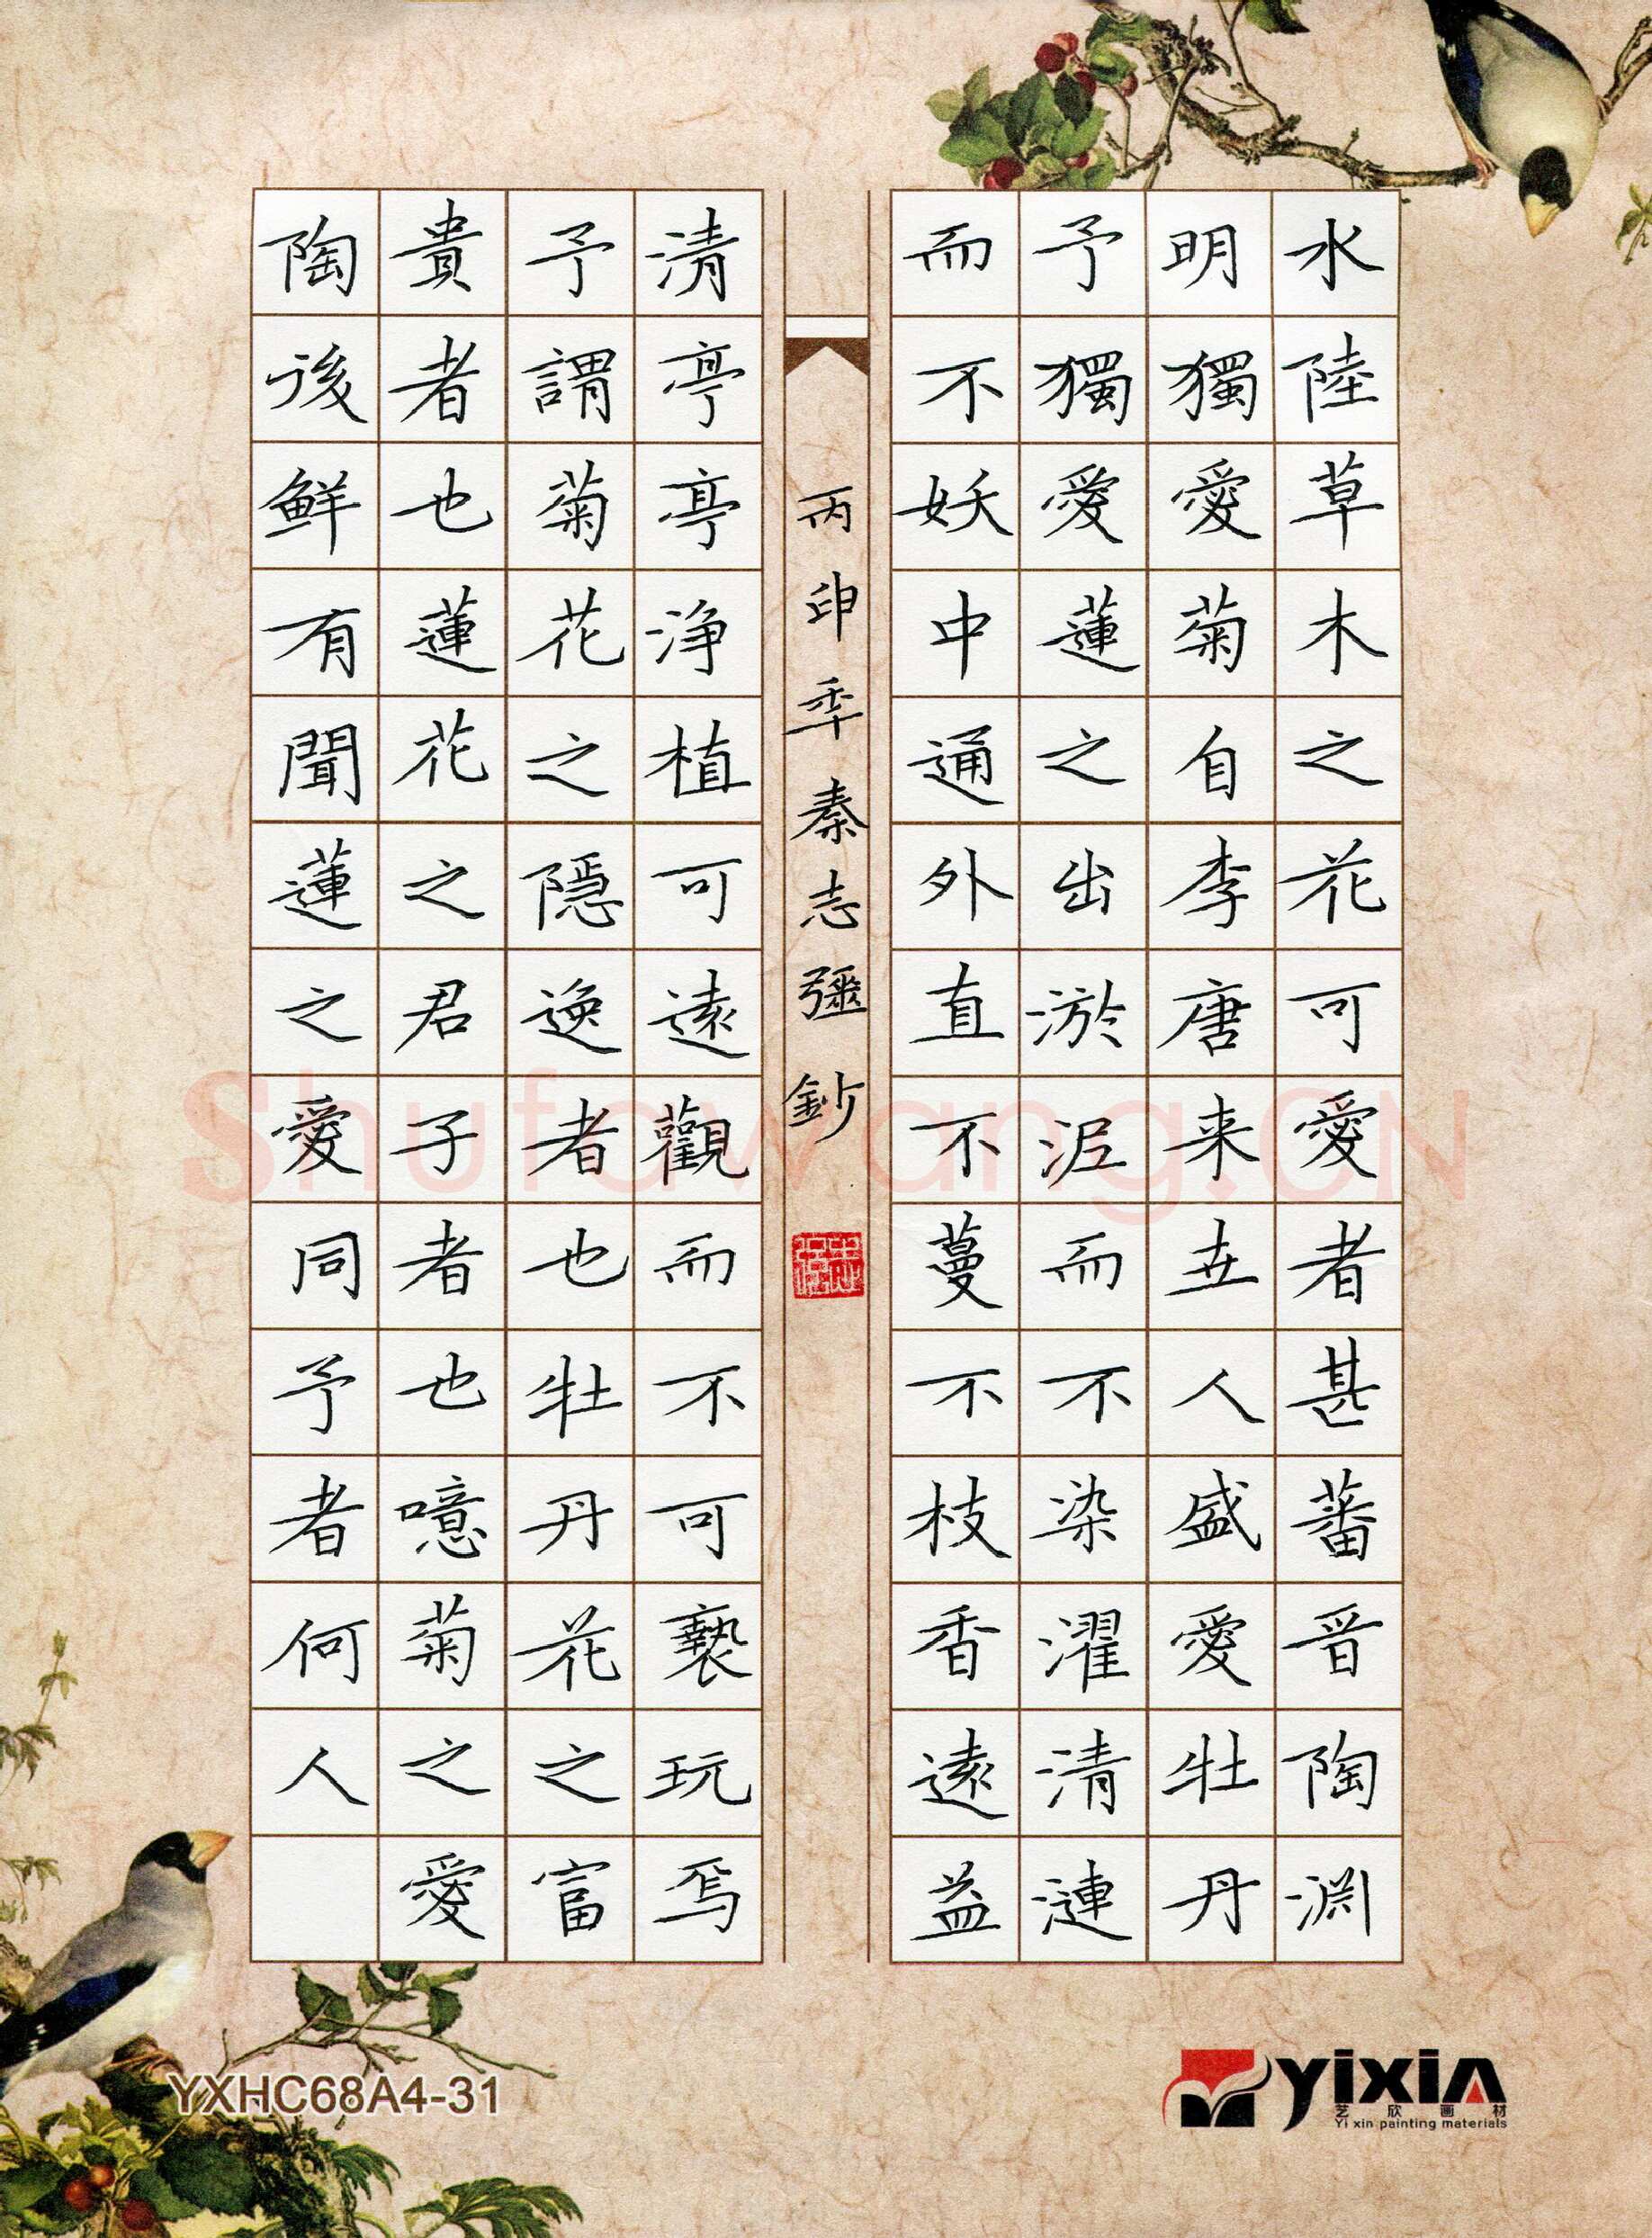 水陸草木之花可愛者甚蕃晋陶渊
明獨愛菊自李唐来世人盛愛牡丹
予獨愛蓮之出淤泥而不染濯清漣
而不妖中通外直不蔓不枝香遠益
丙申秊秦志彊鈔
清亭亭净植可遠觀而不可褻玩焉
予謂菊花之隱逸者也牡丹花之富
貴者也蓮花之君子者也噫菊之愛
陶後鲜有聞蓮之愛同予者何人
Shufawang.CN
YXHC68A4-31
yixin
艺欣画材
Yi xin painting materials